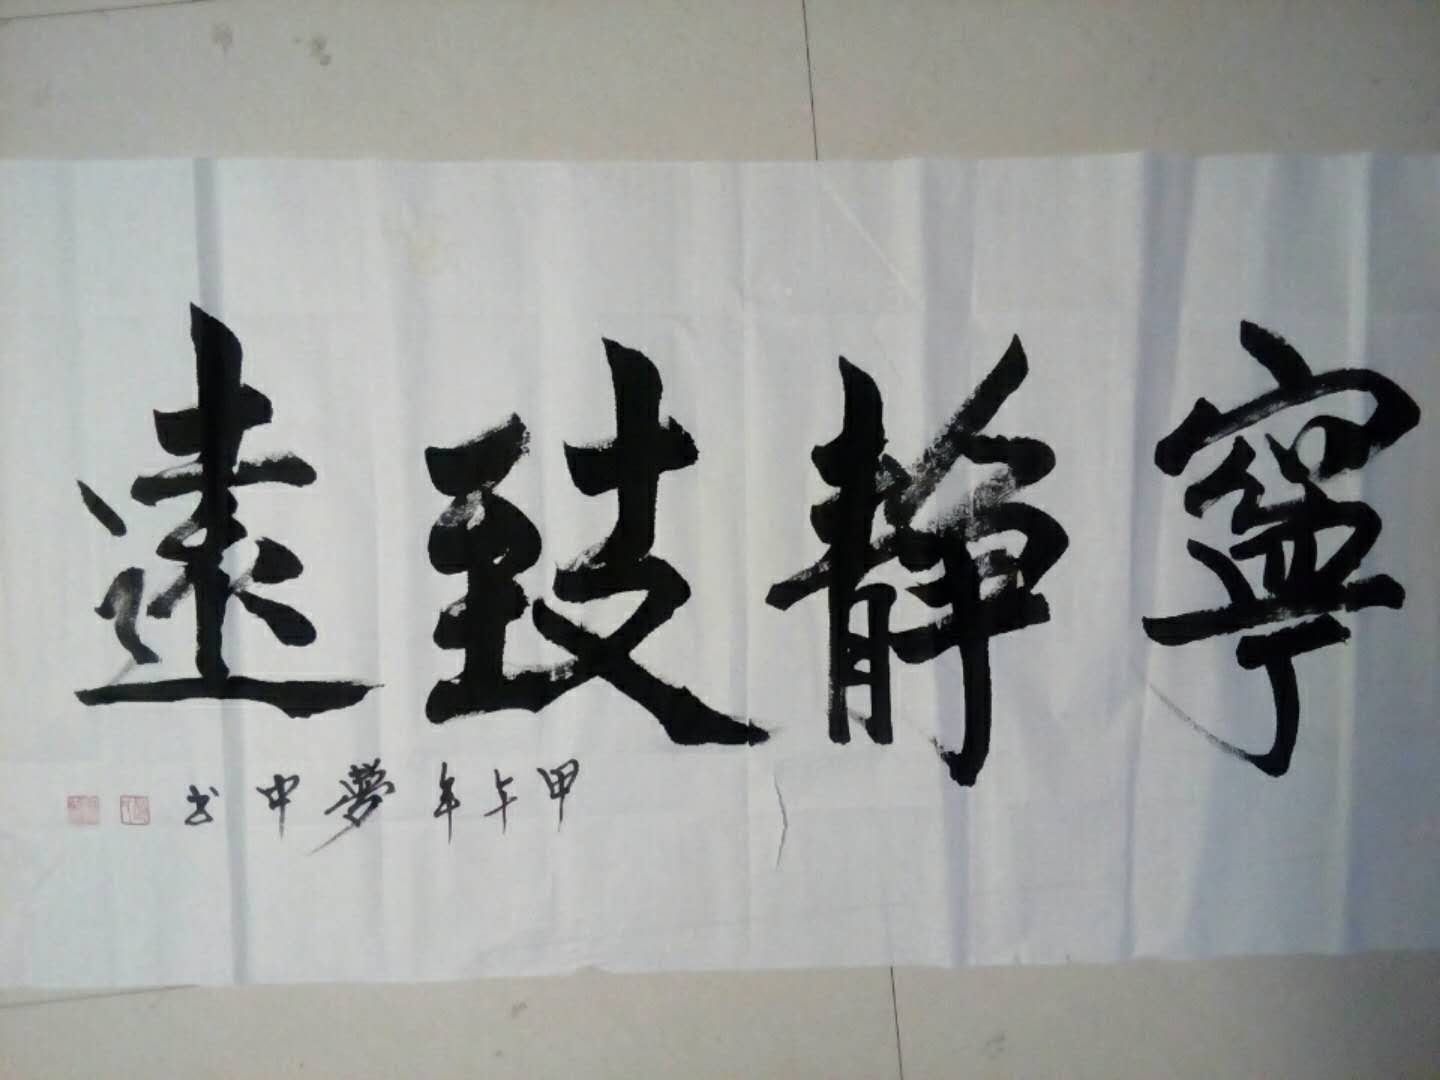 寧靜致遠
甲午年夢中书